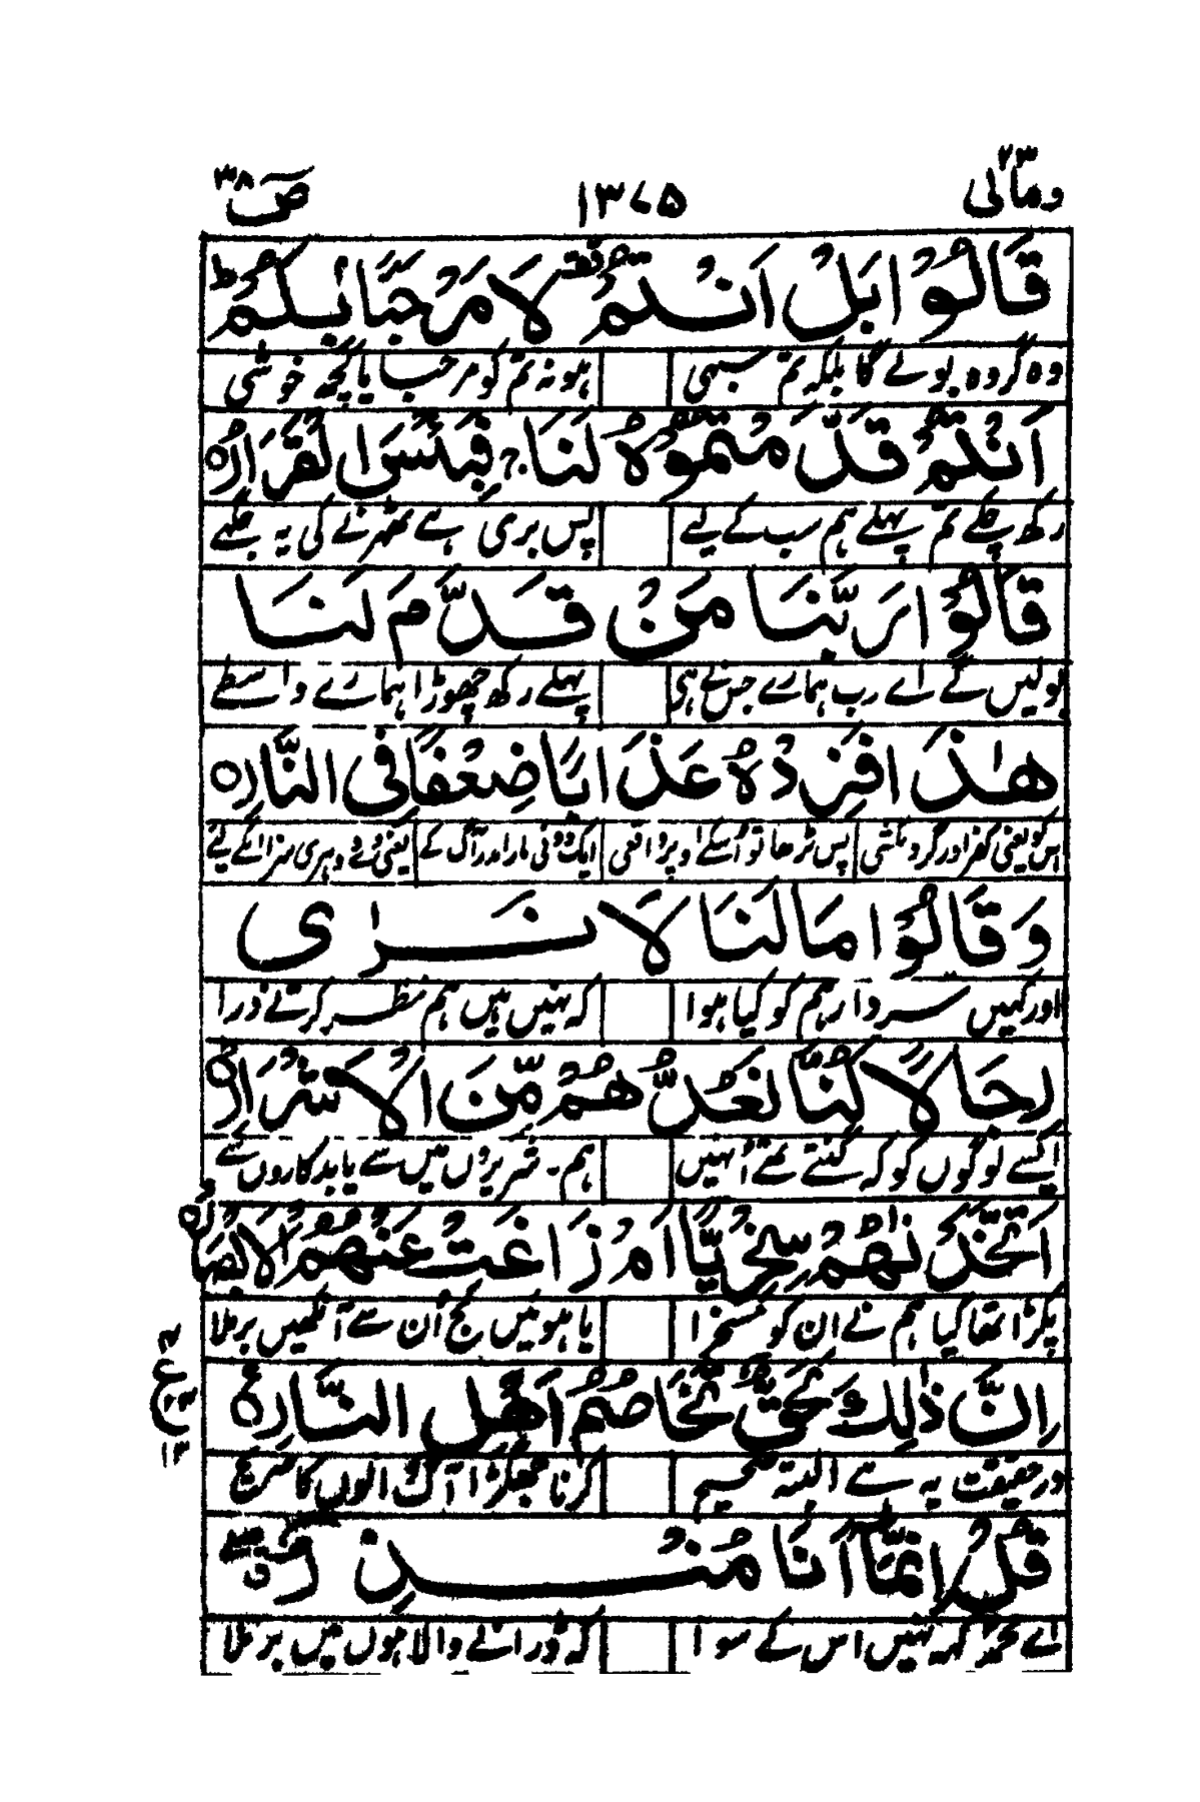 ومالی ۲۳ ۱۳۷۵ صٓ ۳۸
قَالُوْا بَلْ اَنْتُمْ لَا مَرْحَبًۢا بِكُمْ ؕ
وہ گروہ بولے گا بلکہ تم سبھی ہو نہ تم کو مرحبا یا کچھ خوشی
اَنْتُمْ قَدَّمْتُمُوْهُ لَنَا ۚ فَبِئْسَ الْقَرَارُ ○
رکھ چکے تم پہلے ہم سب کے لیے پس بری ہے ٹھہرنے کی یہ جگہ
قَالُوْا رَبَّنَا مَنْ قَدَّمَ لَنَا
بولیں گے اے رب ہمارے جس نے ہی پہلے رکھ چھوڑا ہمارے واسطے
هٰذَا فَزِدْهُ عَذَابًا ضِعْفًا فِی النَّارِ ○
اس کو یعنی کفر اور پس بڑھا تو اسکے اوپر واقعی ایک دونی مار اندر آگ کے یعنی دوہری سزا اسکے لیے
وَقَالُوْا مَا لَنَا لَا نَرٰی
اور کہیں سردار ہم کو کیا ہوا کہ نہیں ہیں ہم نظر کرتے ذرا
رِجَالًا كُنَّا نَعُدُّهُمْ مِّنَ الْاَشْرَارِ ○
ایسے لوگوں کو کہ گنتے تھے انہیں ہم۔ شریروں میں سے یا بدکاروں سے
اَتَّخَذْنٰهُمْ سِخْرِیًّا اَمْ زَاغَتْ عَنْهُمُ الْاَبْصَارُ ○
پکڑا تھا کیا ہم نے ان کو مسخرا یا ہوئیں کج ان سے آنکھیں برملا
اِنَّ ذٰلِكَ لَحَقٌّ تَخَاصُمُ اَهْلِ النَّارِ ○
ع ۱۳
درحقیقت یہ ہے البتہ صحیح کرنا جھگڑا آگ والوں کا
قُلْ اِنَّمَا اَنَا مُنْذِرٌ
اے محمد کہہ نہیں اس کے سوا کہ ڈرانے والا ہوں میں برملا